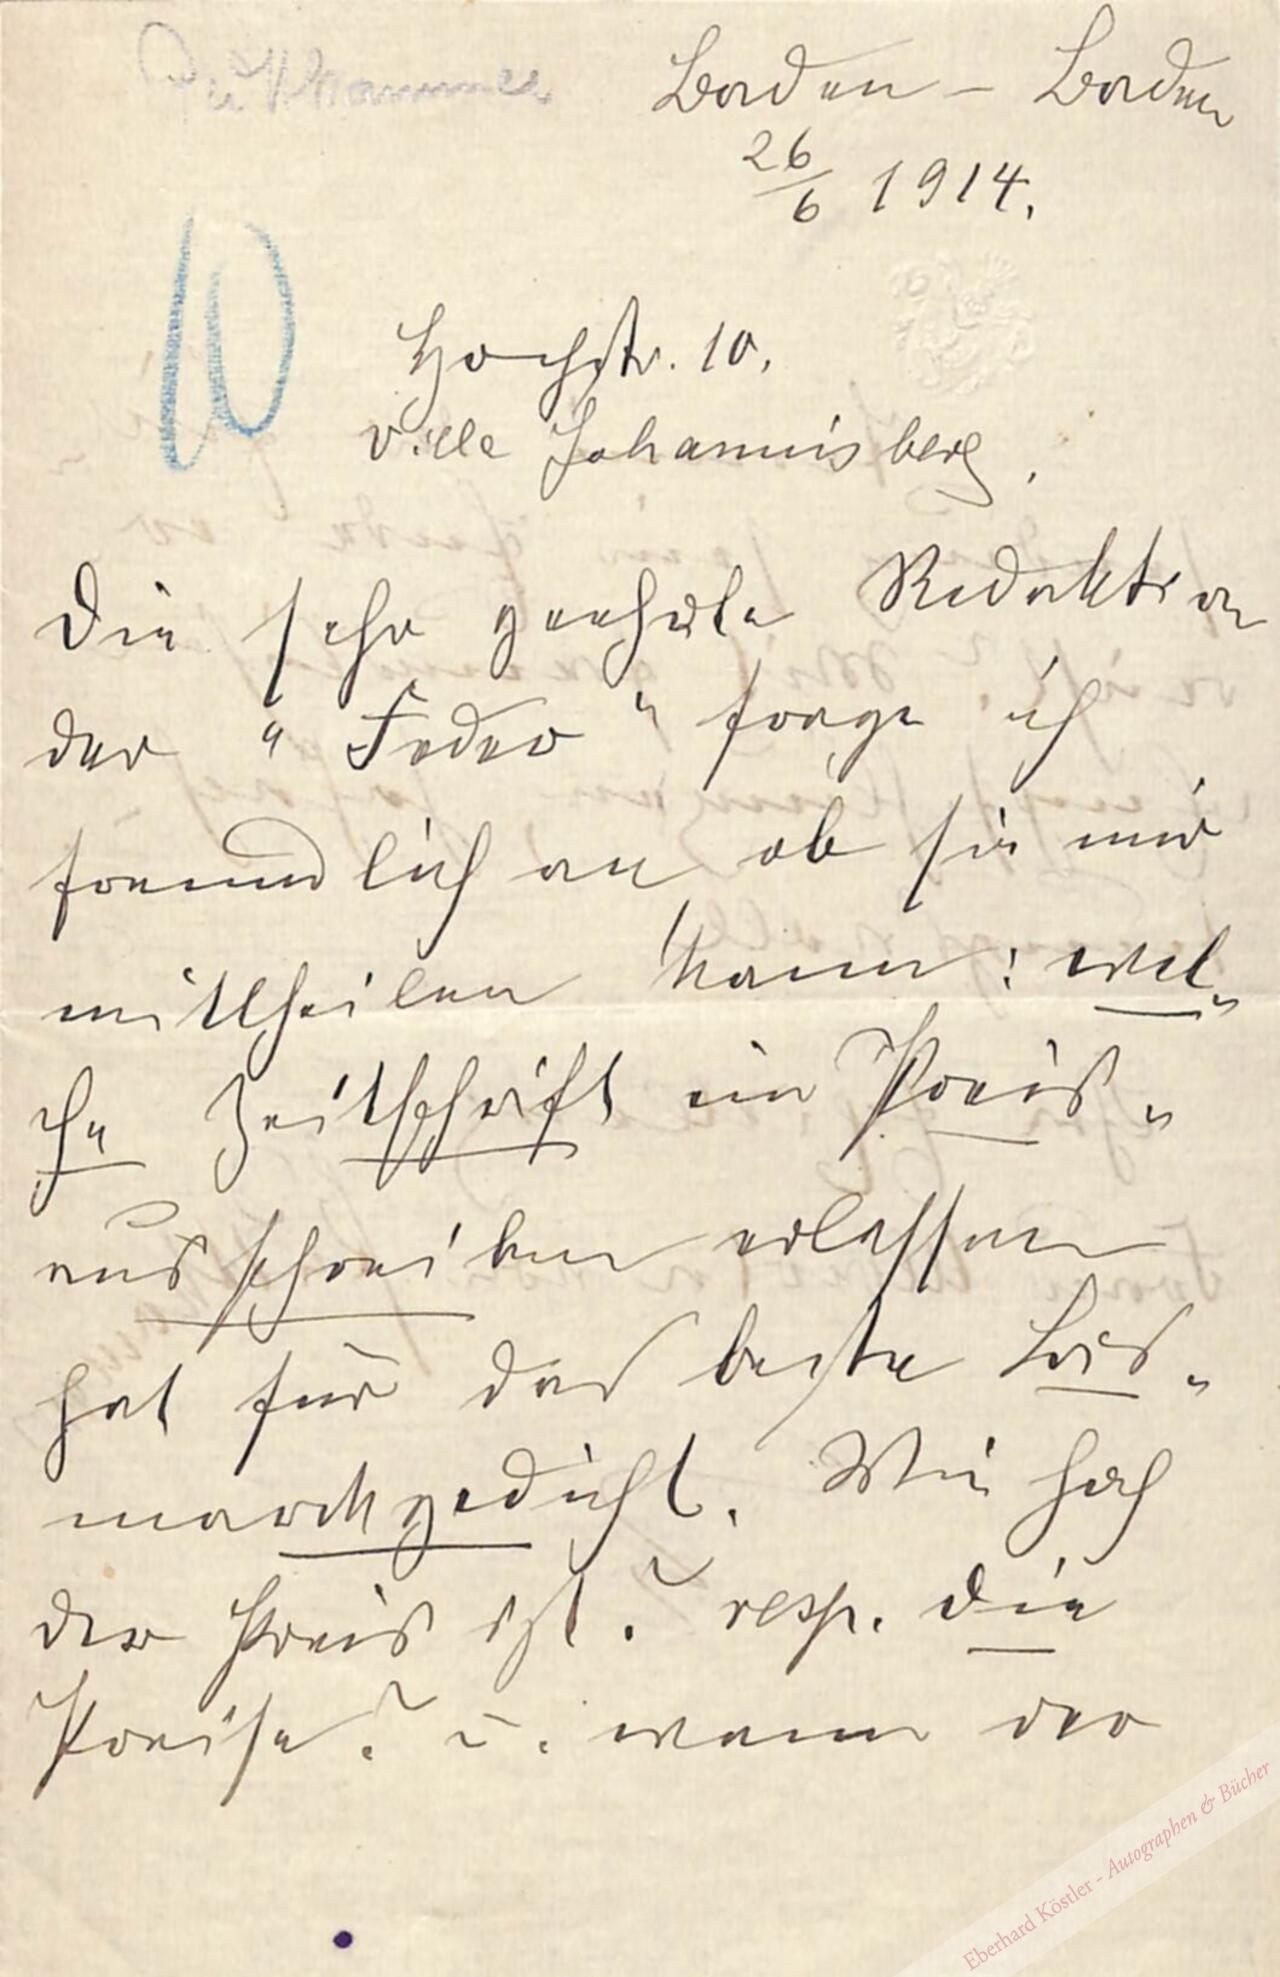 Puttkammer
Baden-Baden
26/6 1914.
10
Hochstr. 10.
Villa Johannisberg.
Die sehr geehrte Redaktion
der "Feder" frage ich
freundlich an ob sie mir
mittheilen kann: wel-
che Zeitschrift ein Preis-
ausschreiben erlassen
hat für das beste Bis-
marckgedicht. Wie hoch
der Preis ist? resp. die
Preise? u. wann der
Eberhard Köstler - Autographen & Bücher